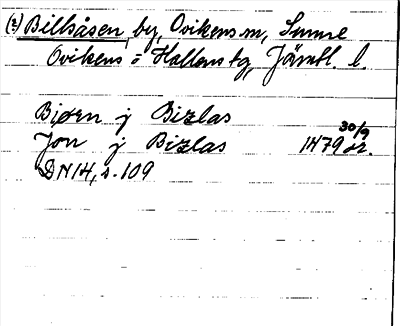 (2) Billsåsen, by, Ovikens sn, Sunne
Ovikens o Hallens tg, Jämtl. l.
Bjørn j Bizlas
30/9
Jon j Bizlas 1479 or.
DN 14, s. 109